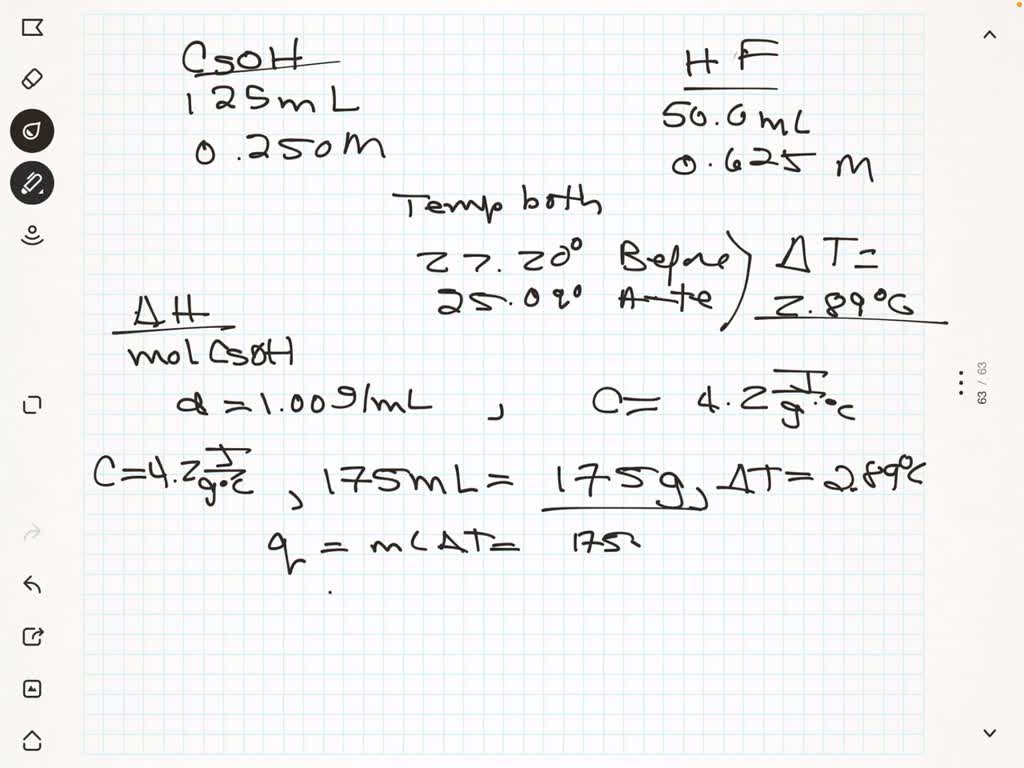 CsOH HF
125mL 50.0mL
0.250M 0.625 M
Temp both
22.20° Before ΔT=
25.09° After 2.89°C
ΔH
mol CsOH
d = 1.00g/mL , C= 4.2 J/g·°C
C=4.2 J/g·°C , 175mL = 175g, ΔT= 2.89°C
q = mCΔT= 175
63 / 63